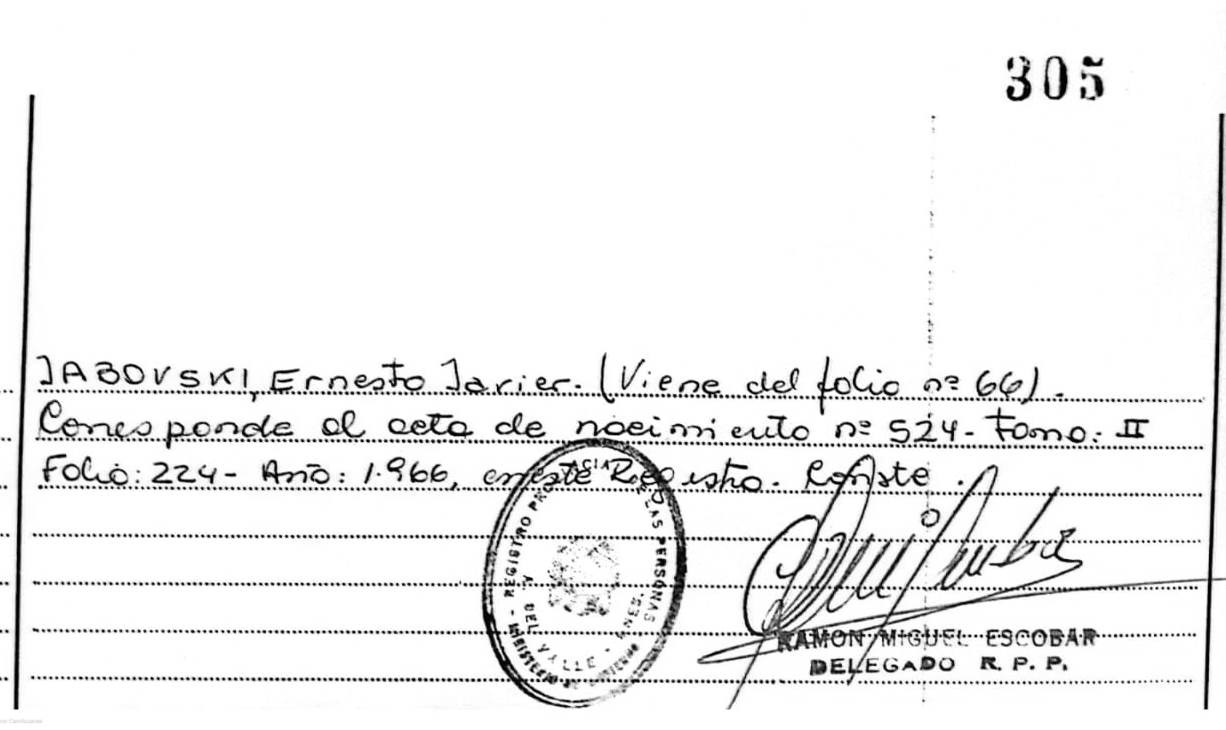 305
JABOVSKI, Ernesto Javier. (Viene del folio nº 66).
Corresponde al acta de nacimiento nº 524- Tomo: II
Folio: 224- Año: 1.966, en este Registro. Conste.
REGISTRO DE LAS PERSONAS
DEL VALLE
RAMON MIGUEL ESCOBAR
DELEGADO R. P. P.